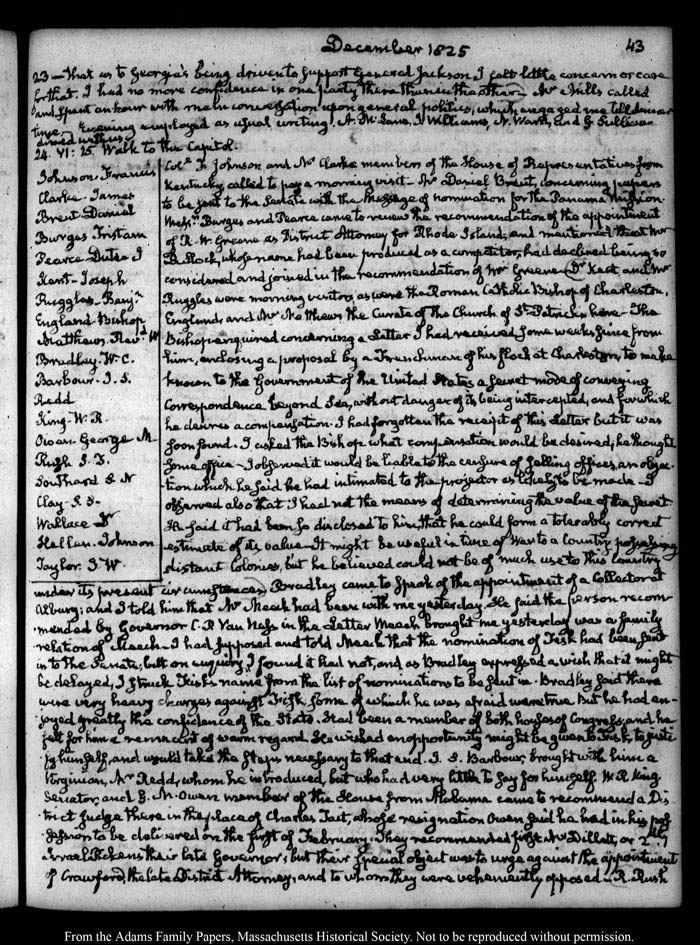 December 1825
43
23 — that as to Georgia's being driven to support General Jackson, I felt little concern or care
for that. I had no more confidence in one party there than in the other — Mr Mills called
and spent an hour with me in conversation upon general politics, which engaged me till dinner
time — Evening employed as usual writing. A. McLane, J. Williams, N. Ward, and G. Sullivan
dined with us.
24. VI: 25. Walk to the Capitol.
Johnson. Francis
Clarke. James
Brent Daniel
Burges Tristam
Pearce Dutee J
Kent. Joseph
Ruggles. Benjn
England Bishop
Matthews. Revd W
Bradley. W. C.
Barbour. J. S.
Redd
King. W. R.
Owen. George M
Rush
Southard S. N
Clay
Wallace Dr
Hellen. Johnson
Taylor. J. W.
Coll F. Johnson and Mr Clarke members of the House of Representatives from
Kentucky, called to pay a morning visit — Mr Daniel Brent, concerning papers
to be sent to the Senate with the Message of nomination for the Panama Mission.
Messrs Burges and Pearce came to renew the recommendation of the appointment
of R. W. Greene as District Attorney for Rhode Island; and mentioned that Mr
whose name had been produced as a competitor, had declined being so
considered and joined in the recommendation of Mr Greene — Dr Kent, and Mr
Ruggles were morning visitors, as were the Roman Catholic Bishop of Charleston,
England, and Mr Matthews the Curate of the Church of St Patrick's here — The
Bishop enquired concerning a Letter I had received some weeks since from
him, enclosing a proposal by a Frenchman of his flock at Charleston, to make
known to the Government of the United States a secret mode of conveying
Correspondence beyond Sea, without danger of its being intercepted, and for which
he desires a compensation. I had forgotten the receipt of this Letter but it was
soon found. I asked the Bishop what compensation would be desired; he thought
some office — I observed it would be liable to the censure of selling offices, an objec-
tion which he said he had intimated to the projector as likely to be made — I
observed also that I had not the means of determining the value of the secret.
He said it had been so disclosed to him, that he could form a tolerably correct
estimate of its value — It might be useful in time of War to a Country possessing
distant Colonies, but he believed could not be of much use to this Country
under its present circumstances. Bradley came to speak of the appointment of a Collector at
Alburg; and I told him that Mr Meech had been with me yesterday. He said the person recom-
mended by Governor C. P. Van Ness in the Letter Meech brought me yesterday was a family
relation of Meech — I had supposed and told Meech that the nomination of Fisk had been sent
in to the Senate, but on enquiry, I found it had not, and as Bradley expressed a wish that it might
be delayed, I struck Fisk's name from the list of nominations to be sent in. Bradley said there
were very heavy charges against Fisk, some of which he was afraid were true. But he had en-
joyed greatly the confidence of the State. Had been a member of both houses of Congress, and he
felt for him a remnant of warm regard. He wished an opportunity might be given to Fisk to justi-
fy himself, and would take the steps necessary to that end. J. S. Barbour, brought with him a
Virginian, Mr Redd, whom he introduced, but who had very little to say for himself. W. R King
Senator, and G. M. Owen member of the House from Alabama came to recommend a Dis-
trict Judge there in the place of Charles Tait, whose resignation Owen said he had in his pos-
session to be delivered on the first of February. They recommended first Mr Dellet, or 2dly
Israel Pickens their late Governor; but their special object was to urge against the appointment
of Crawford, the late District Attorney, and to whom they were vehemently opposed — R. Rush
From the Adams Family Papers, Massachusetts Historical Society. Not to be reproduced without permission.